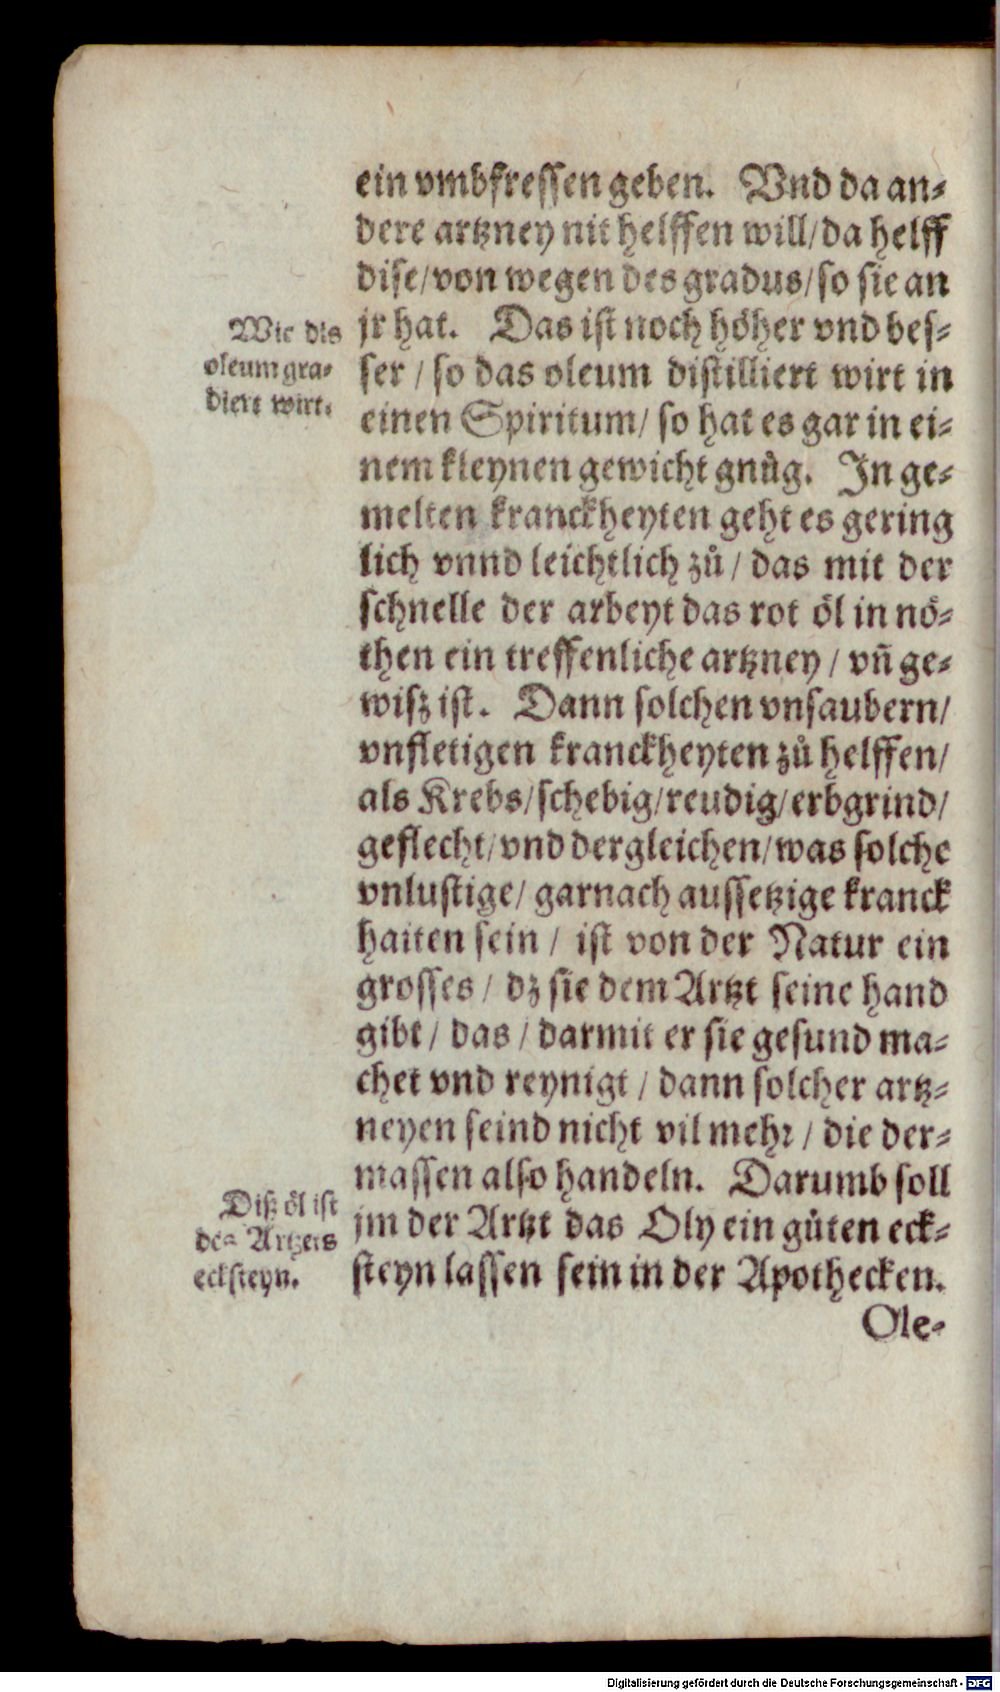 ein vmbfressen geben. Vnd da an⸗
dere artzney nit helffen will/ da helff
dise/ von wegen des gradus/ so sie an
jr hat. Das ist noch höher vnd bes⸗
ser / so das oleum distilliert wirt in
einen Spiritum/ so hat es gar in ei⸗
nem kleynen gewicht gnůg. In ge⸗
melten kranckheyten geht es gering
lich vnnd leichtlich zů / das mit der
schnelle der arbeyt das rot öl in nö⸗
then ein treffenliche artzney / vñ ge⸗
wisz ist. Dann solchen vnsaubern/
vnfletigen kranckheyten zů helffen/
als Krebs/ schebig/ reudig/ erbgrind/
geflecht/ vnd dergleichen/ was solche
vnlustige/ garnach aussetzige kranck
haiten sein / ist von der Natur ein
grosses / dz sie dem Artzt seine hand
gibt / das / darmit er sie gesund ma⸗
chet vnd reynigt / dann solcher artz⸗
neyen seind nicht vil mehr / die der⸗
massen also handeln. Darumb soll
jm der Artzt das Oly ein gůten eck⸗
steyn lassen sein in der Apothecken.
Ole⸗
Wie dis
oleum gra⸗
diert wirt.
Disz öl ist
des Artzets
ecksteyn.
Digitalisierung gefördert durch die Deutsche Forschungsgemeinschaft - DFG